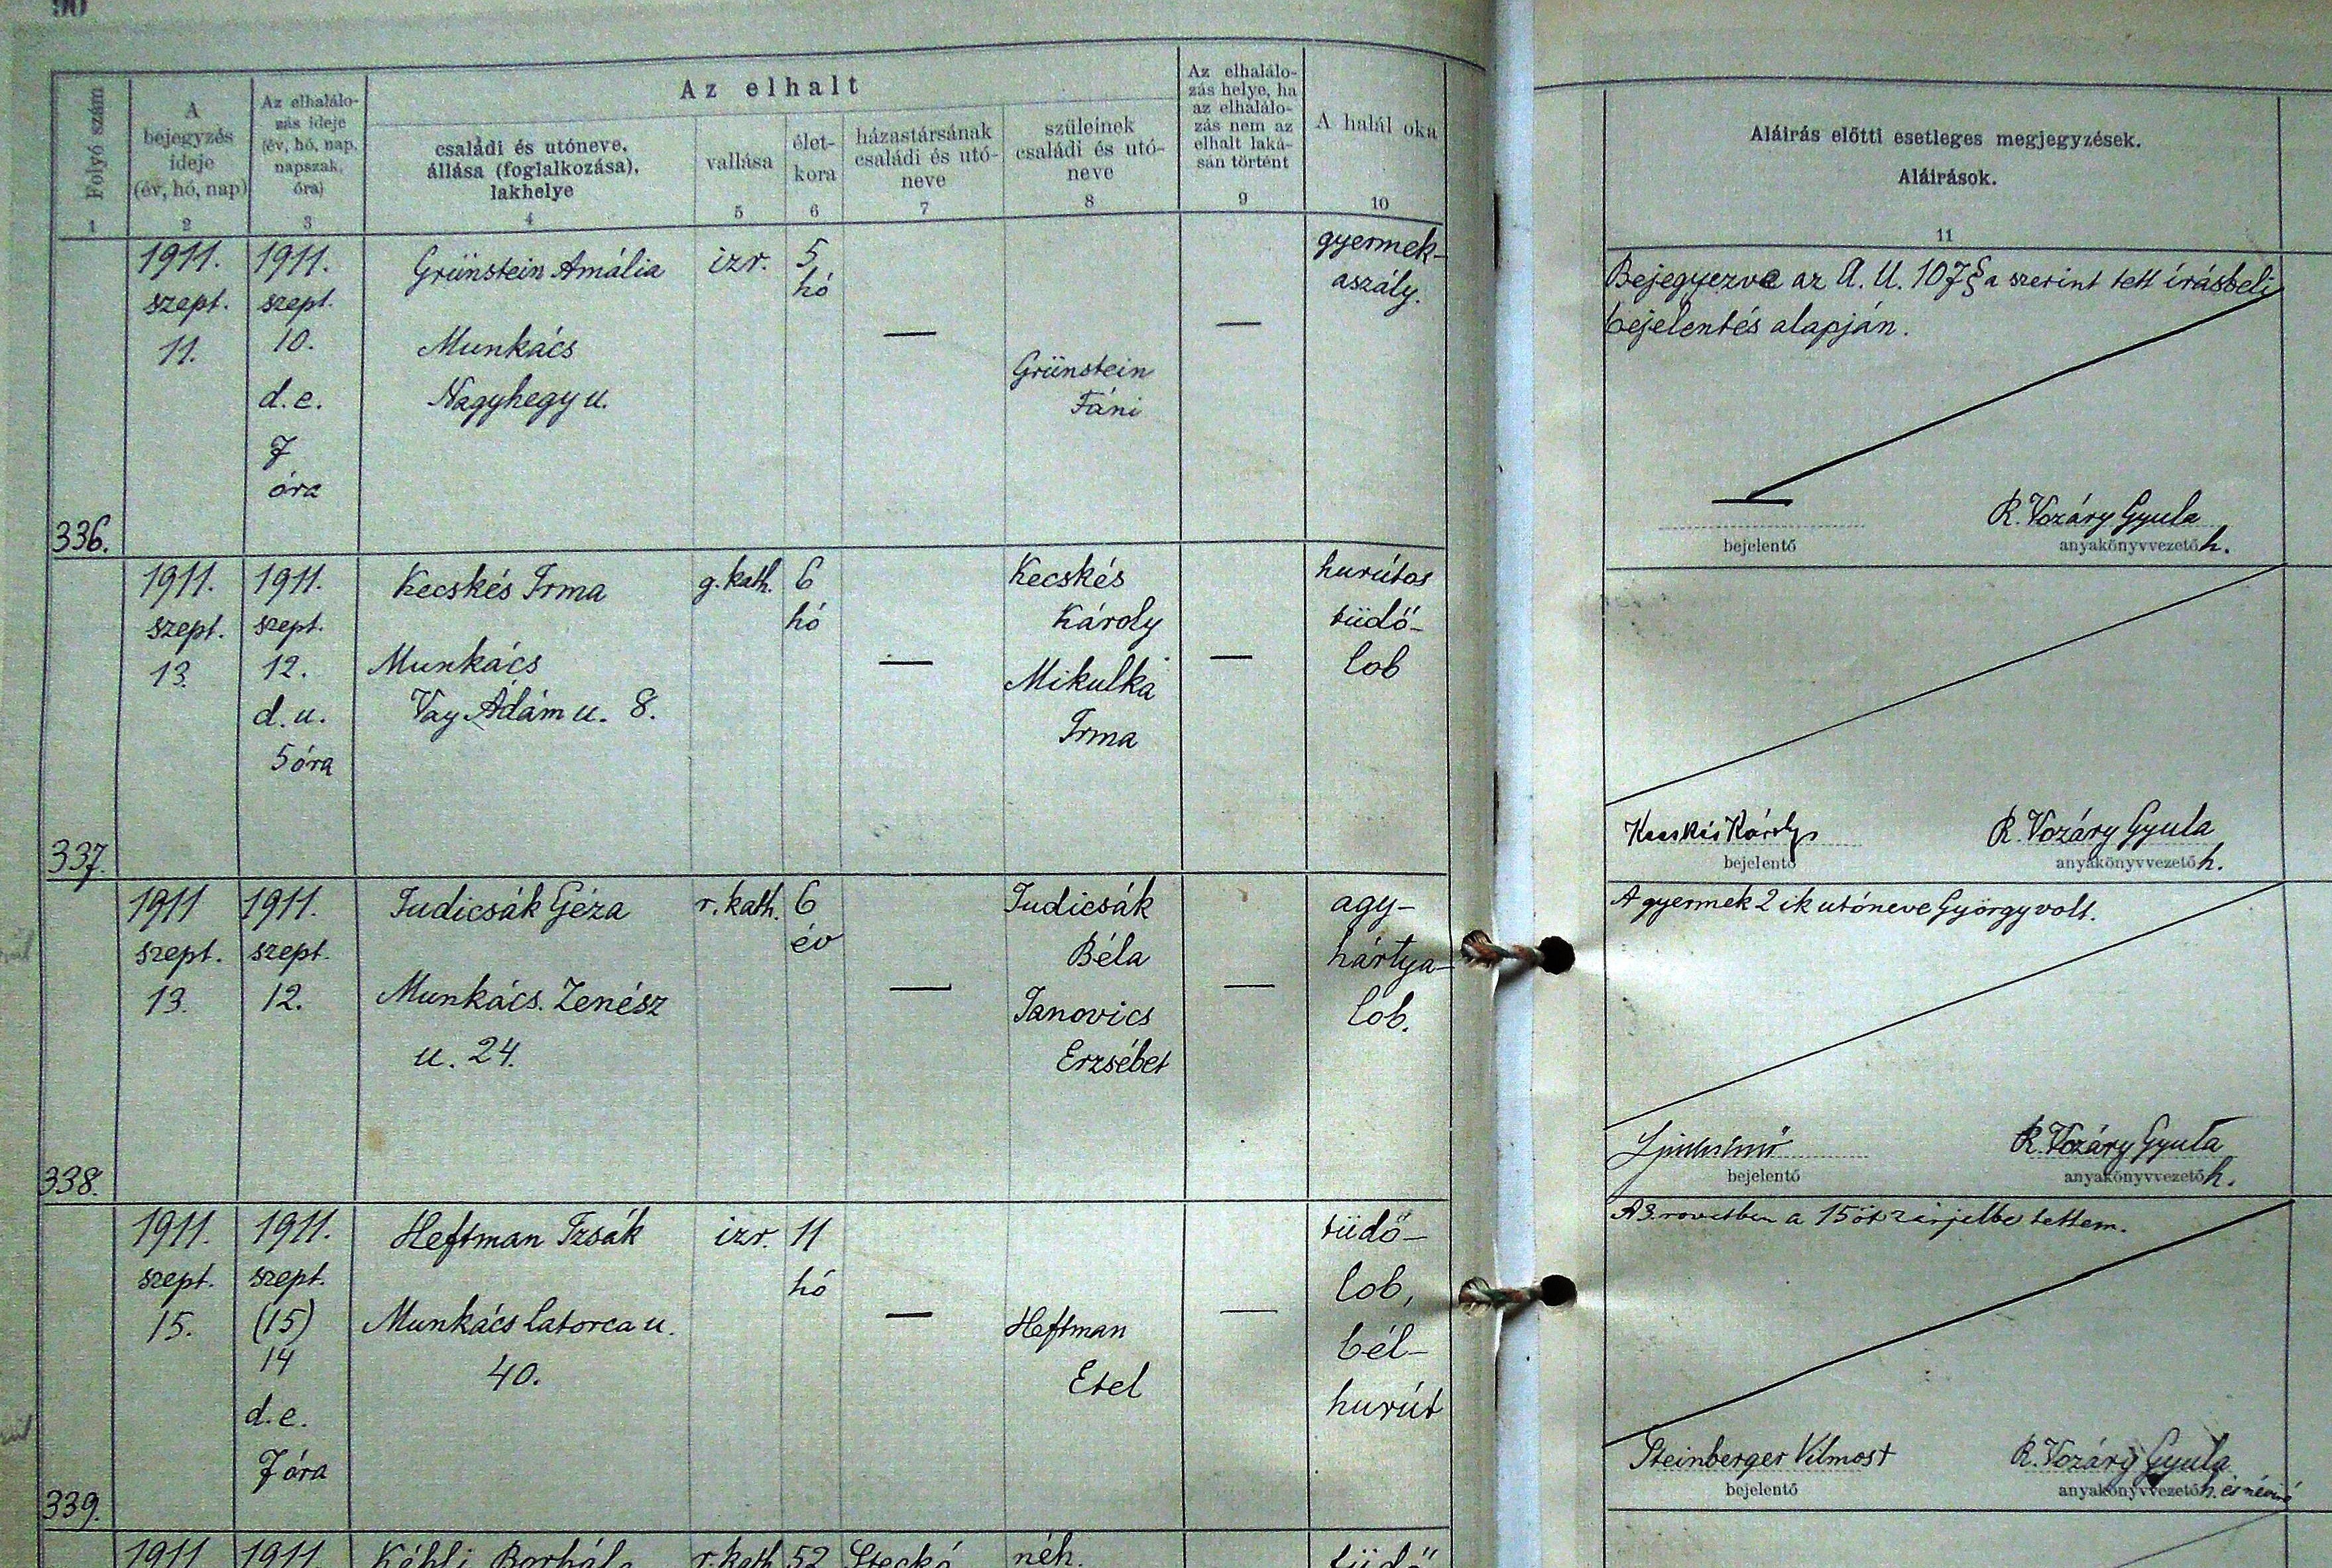 90
Az elhalt
Folyó szám
1
A
bejegyzés
ideje
(év, hó, nap)
2
Az elhalálo-
zás ideje
(év, hó, nap,
napszak,
óra)
3
családi és utóneve,
állása (foglalkozása),
lakhelye
4
vallása
5
élet-
kora
6
házastársának
családi és utó-
neve
7
szüleinek
családi és utó-
neve
8
Az elhalálo-
zás helye, ha
az elhalálo-
zás nem az
elhalt laká-
sán történt
9
A halál oka
10
Aláirás előtti esetleges megjegyzések.
Aláirások.
11
336.
1911.
szept.
11.
1911.
szept.
10.
d. e.
7
óra
Grünstein Amália
Munkács
Nagyhegy u.
izr.
5
hó
—
Grünstein
Fáni
—
gyermek-
aszály.
Bejegyezve az A. U. 107 § a szerint tett írásbeli
bejelentés alapján.
R. Vozáry Gyula
bejelentő
anyakönyvvezető h.
337.
1911.
szept.
13.
1911.
szept.
12.
d. u.
5 óra
Kecskés Irma
Munkács
Vay Ádám u. 8.
g. kath.
6
hó
—
Kecskés
Károly
Mikulka
Irma
—
hurútos
tüdő-
lob
Kecskés Károly
R. Vozáry Gyula
bejelentő
anyakönyvvezető h.
338.
1911
szept.
13.
1911.
szept.
12.
Judicsák Géza
Munkács. Zenész
u. 24.
r. kath.
6
év
—
Judicsák
Béla
Janovics
Erzsébet
—
agy-
hártya-
lob.
A gyermek 2 ik utóneve György volt.
R. Vozáry Gyula
bejelentő
anyakönyvvezető h.
339.
1911.
szept.
15.
1911.
szept.
(15)
14
d. e.
7 óra
Heftman Izsák
Munkács Latorca u.
40.
izr.
11
hó
—
Heftman
Etel
—
tüdő-
lob,
bél-
hurút
A 3. rovatban a 15 öt zárjelbe tettem.
Steinberger Vilmost
R. Vozáry Gyula
bejelentő
anyakönyvvezető h.
1911
1911
Borbál
r. kath
52
Steckó
néh.
tüdő